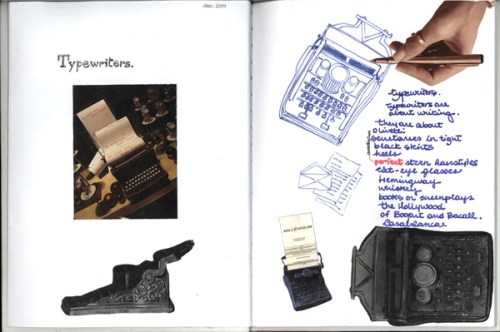 dec. 2011
Typewriters.
typewriters.
typewriters are
about writing.
they are about
olivetti
secretaries in tight
black skirts
heels
perfect stern hairstyles
cat-eye glasses
Hemingway
whiskey
books or screenplays
the Hollywood
of Bogart and Bacall.
Casablanca
MILLENNIUM